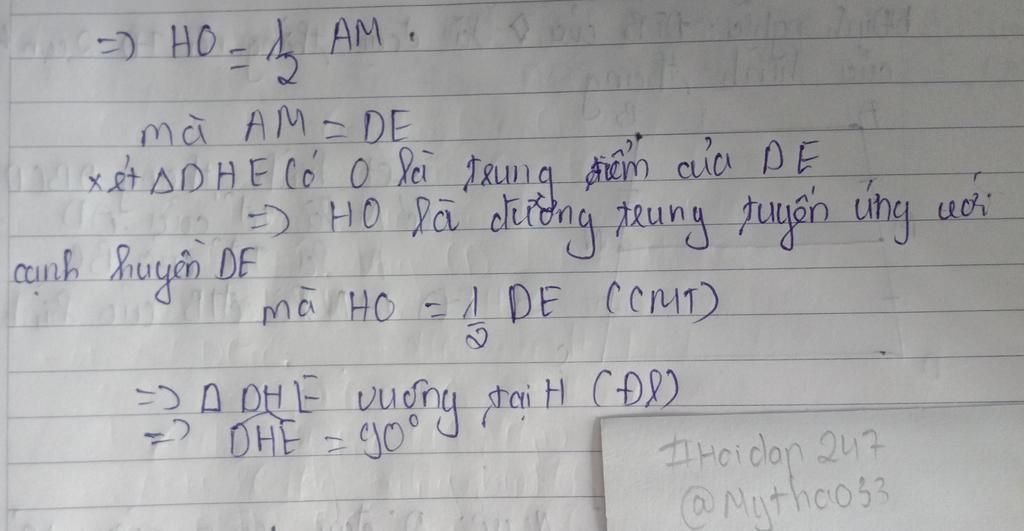 => HO = 1/2 AM.
mà AM = DE
xét ΔDHE có O là trung điểm của DE
=> HO là đường trung tuyến ứng với
cạnh huyền DE
mà HO = 1/2 DE (CMT)
=> Δ DHE vuông tại H (Đl)
=> DHE = 90°
#Hoidap247
@Mythao33